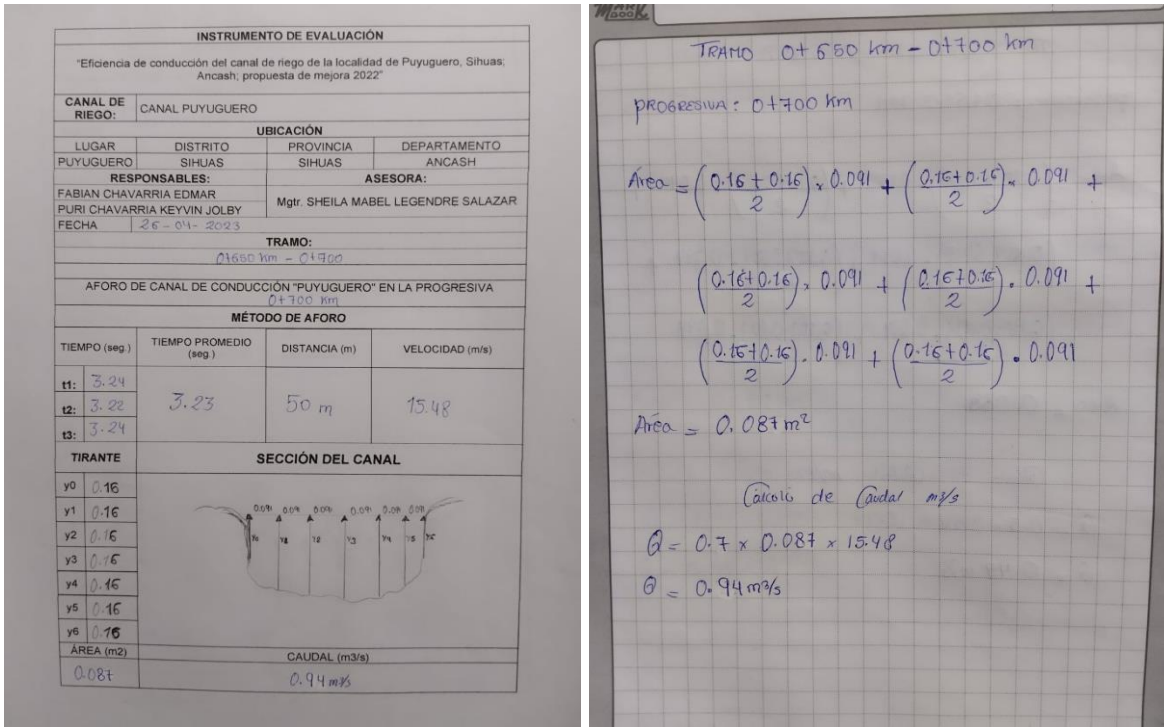 INSTRUMENTO DE EVALUACIÓN
"Eficiencia de conducción del canal de riego de la localidad de Puyuguero, Sihuas;
Ancash; propuesta de mejora 2022"
CANAL DE RIEGO: CANAL PUYUGUERO
UBICACIÓN
LUGAR DISTRITO PROVINCIA DEPARTAMENTO
PUYUGUERO SIHUAS SIHUAS ANCASH
RESPONSABLES: ASESORA:
FABIAN CHAVARRIA EDMAR
PURI CHAVARRIA KEYVIN JOLBY
Mgtr. SHEILA MABEL LEGENDRE SALAZAR
FECHA 26-04-2023
TRAMO:
0+650 km - 0+700
AFORO DE CANAL DE CONDUCCIÓN "PUYUGUERO" EN LA PROGRESIVA
0+700 km
MÉTODO DE AFORO
TIEMPO (seg.) TIEMPO PROMEDIO (seg.) DISTANCIA (m) VELOCIDAD (m/s)
t1: 3.24
t2: 3.22 3.23 50 m 15.48
t3: 3.24
TIRANTE SECCIÓN DEL CANAL
y0 0.16
y1 0.16
y2 0.16
y3 0.16
y4 0.16
y5 0.16
y6 0.16
0.091 0.091 0.091 0.091 0.091 0.091
ÁREA (m2) CAUDAL (m3/s)
0.087 0.94 m³/s
TRAMO 0+650 km - 0+700 km
PROGRESIVA: 0+700 km
Area = (0.16+0.16/2) x 0.091 + (0.16+0.16/2) x 0.091 +
(0.16+0.16/2) x 0.091 + (0.16+0.16/2) . 0.091 +
(0.16+0.16/2) . 0.091 + (0.16+0.16/2) . 0.091
Area = 0.087 m²
Cálculo de Caudal m³/s
Q = 0.7 x 0.087 x 15.48
Q = 0.94 m³/s